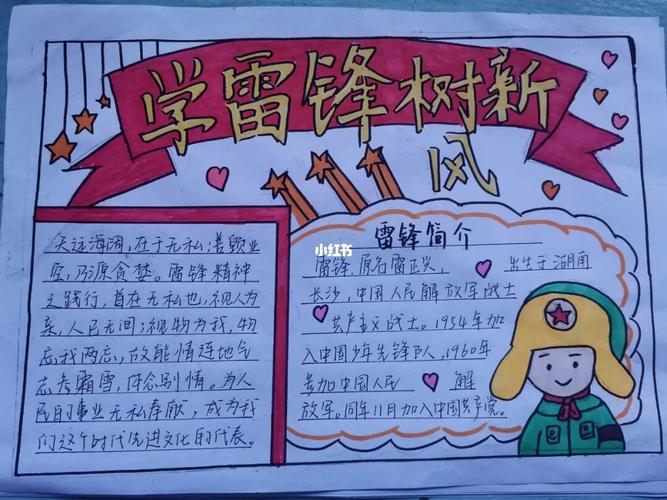 学雷锋树新
风
小红书
天远海阔,在于无私;善颐业
空,乃源贪婪。雷锋精神
之践行,首在无私也,视人为
亲,人民无间;视物为我,物
忘我两忘,故能情连地
志考霜雪,阵念别情。为人
民的事业无私奉献,成为我
们这个时代先进文化的代表。
雷锋简介
雷锋,原名雷正兴, 出生于湖南
长沙,中国人民解放军战士
共产主义战士。1954年加
入中国少年先锋队,1960年
参加中国人民 解
放军,同年11月加入中国共产党。